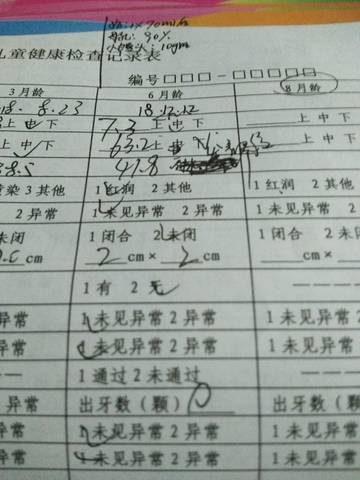 90%
10gm
儿童健康检查记录表
编号□□□-□□□□□
3月龄 6月龄 8月龄
18.8.23 18.12.12
上中下 7.3 上中下 上中下
上中/下 63.2 上中 上中下
38.5 41.8
3其他 1红润 2其他 1红润 2其他
2异常 1未见异常 2异常 1未见异常 2异常
未闭 1闭合 2未闭 1闭合 2未闭
cm 2cm×2cm cm×
1有 2无 ————
异常 1未见异常 2异常 1未见异常 2异常
异常 1未见异常 2异常 1未见异常 2异常
—— 1通过 2未通过 ————
异常 出牙数（颗）0 出牙数（颗）
异常 1未见异常 2异常 1未见异常 2异常
异常 1未见异常 2异常 1未见异常 2异常